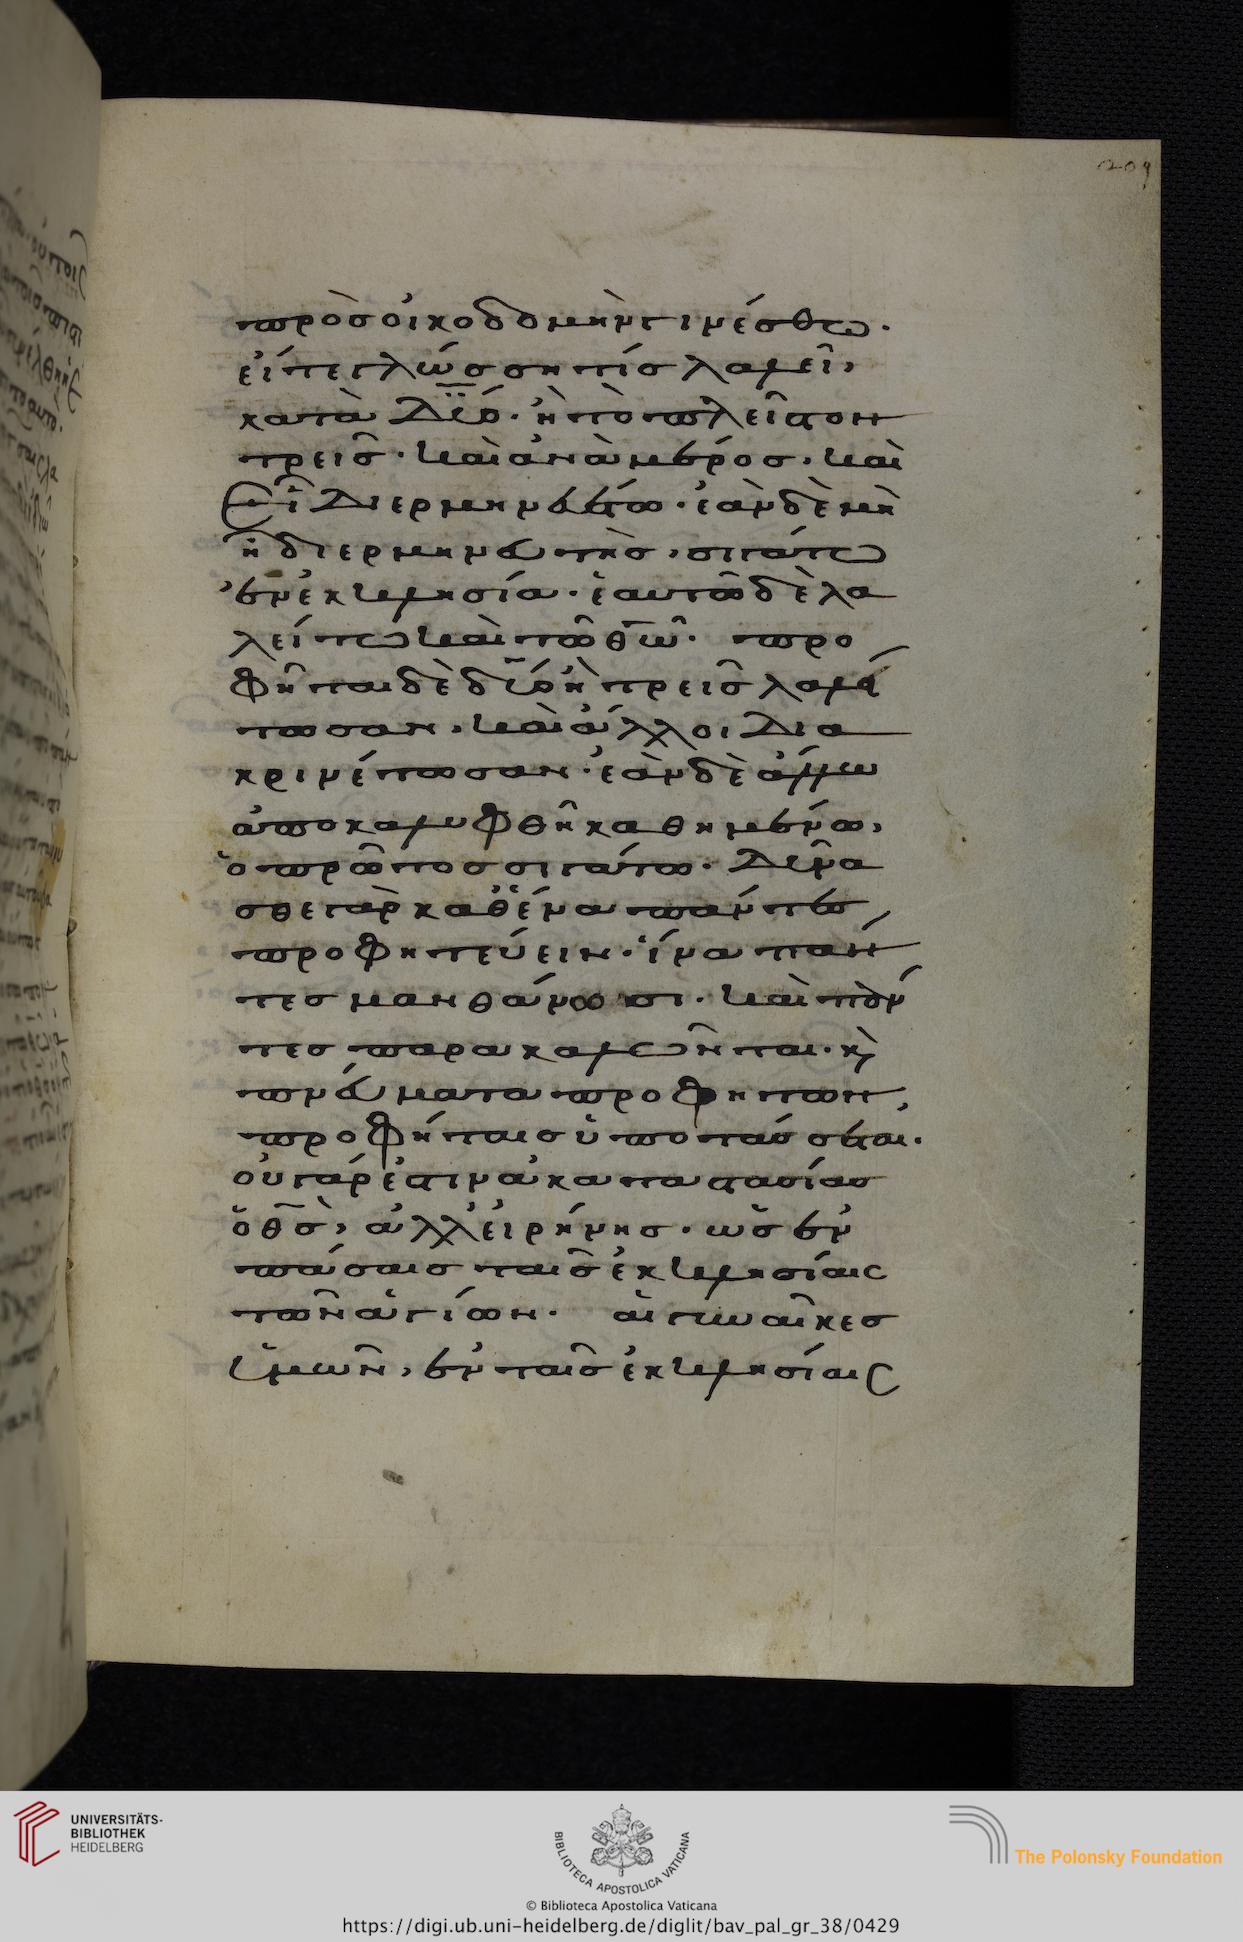 209
πρὸς οἰκοδομὴν γινέσθω.
εἴτε γλώσση τίς λαλεῖ,
κατὰ δύο. ἢ τὸ πλεῖστον
τρεῖς. καὶ ἀνὰ μέρος. καὶ
εἷ διερμηνευέτω. ἐὰν δὲ μὴ
ἦ διερμηνευτὴς, σιγάτω
ἐν ἐκκλησία. ἑαυτῶ δὲ λα
λείτω καὶ τῶ θ̅ω̅. προ
φῆται δὲ δύο ἢ τρεῖς λαλεί
τωσαν. καὶ ἄλλοι δια
κρινέτωσαν. ἐὰν δὲ ἄλλω
ἀποκαλυφθῆ καθημένω,
ὁ πρῶτος σιγάτω. δύνα
σθε γὰρ καθ ἕνα πάντες
προφητεύειν. ἵνα πάν
τες μανθάνωσι. καὶ πάν
τες παρακαλῶνται. κὶ
πνεύματα προφητῶν,
προφήταις ὑποτάσσεται.
οὐ γάρ ἐστιν ἀκαταστασίας
ὁ θ̅ς̅, ἀλλ εἰρήνης. ὡς ἐν
πάσαις ταῖς ἐκκλησίαις
τῶν ἁγίων. αἱ γυναῖκες
ὑμῶν, ἐν ταῖς ἐκκλησίαις
UNIVERSITÄTS-
BIBLIOTHEK
HEIDELBERG
BIBLIOTECA APOSTOLICA VATICANA
The Polonsky Foundation
© Biblioteca Apostolica Vaticana
https://digi.ub.uni-heidelberg.de/diglit/bav_pal_gr_38/0429